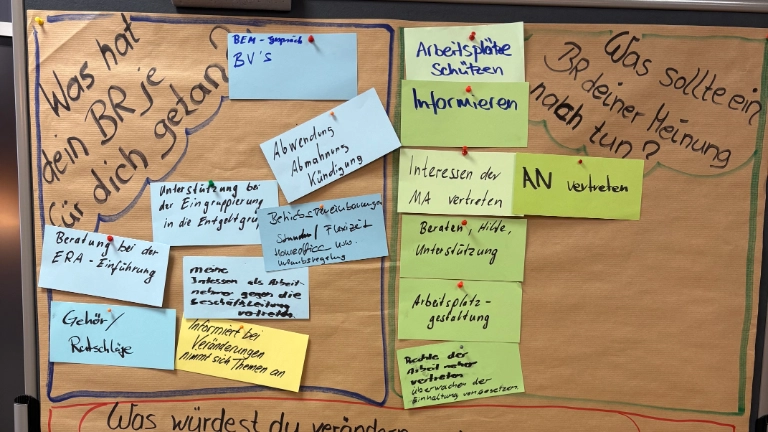 Was hat
dein BR je
für dich getan?
BEM - Gespräch
BV's
Abwendung
Abmahnung
Kündigung
Unterstützung bei
der Eingruppierung
in die Entgeltgru
Betriebsvereinbarungen
Stunden / Flexizeit
Homeoffice usw.
Urlaubsregelung
Beratung bei der
ERA - Einführung
meine
Intessen als Arbeit-
nehmer gegen die
Geschäftsleitung
vertreten.
Gehör/
Ratschläge
Informiert bei
Veränderungen
nimmt sich Themen an
Was sollte ein
BR deiner Meinung
nach tun?
Arbeitsplätze
Schützen
Informieren
Interessen der
MA vertreten
AN vertreten
Beraten, Hilfe,
Unterstützung
Arbeitsplatz-
gestaltung
Rechte der
Arbeitnehmer
vertreten
überwachen der
Einhaltung von Gesetzen
Was würdest du verändern